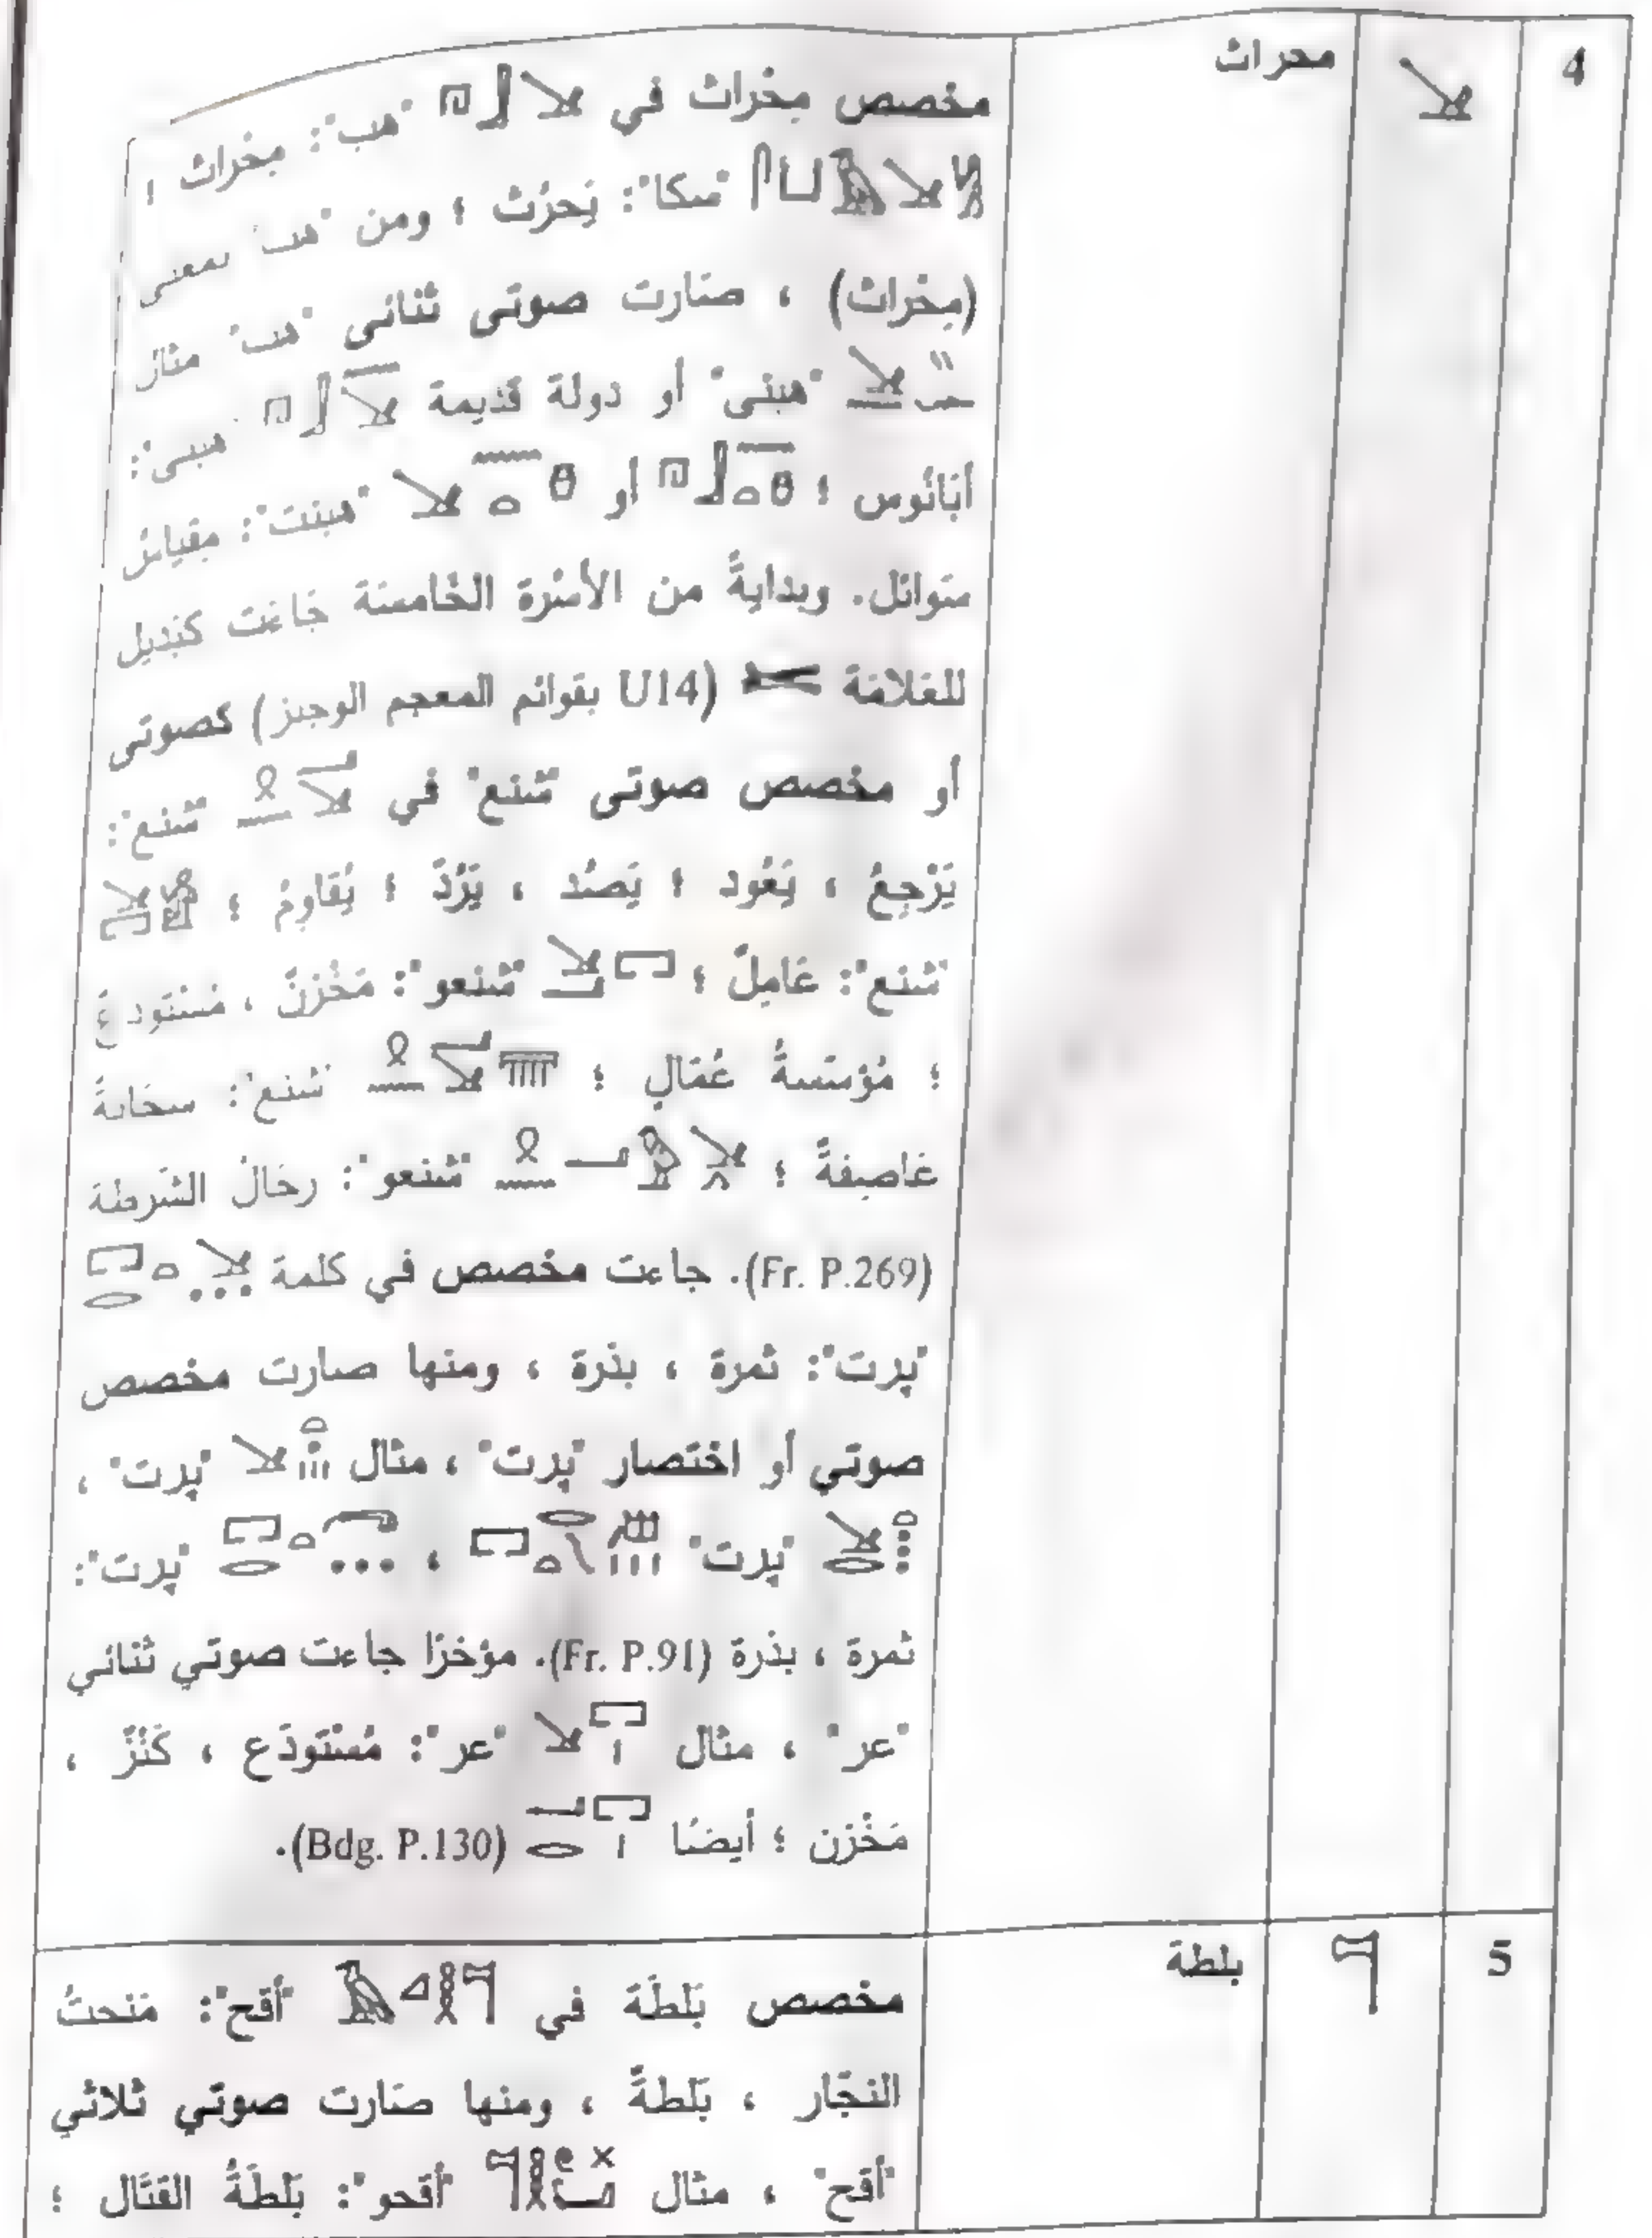 4
محراث
مخصص مِحْراث في 𓉔𓃀𓍁 "هب": مِحْراث ؛
𓋴𓂓𓄿𓍁𓀜 "سكا": يَحرُث ؛ ومن "هب" بمعنى
(مِحْراث) ، صَارت صوتى ثنائى "هب" مثال
"هبنى" أو دولة قديمة "هبنى":
أبَانُوس ؛ أو "هبنت": مِقياسُ
سَوائل. وبدايةً من الأسْرة الخَامسَة جَاءَت كبَديل
للعَلامَة (U14 بقوائم المعجم الوجيز) كصوتى
أو مخصص صوتى "شنع" في "شنع":
يَرْجِعُ ، يَعُود ؛ يَصُد ، يَرُدّ ؛ يُقَاوِمُ ؛
"شنع": عَامِلٌ ؛ "شنعو": مَخْزنٌ ، مُسْتَودعٌ
؛ مُؤسَّسةُ عُمّالٍ ؛ "شنع": سحَابةً
عَاصِفةً ؛ "شنعو": رجَالُ الشَرطة
(Fr. P.269). جاءت مخصص في كلمة
"پرت": ثمرة ، بذرة ، ومنها صارت مخصص
صوتي أو اختصار "پرت" ، مثال "پرت" ،
"پرت" ، "پرت":
ثمرة ، بذرة (Fr. P.91). مؤخرًا جاءت صوتي ثنائي
"عر" ، مثال "عر": مُسْتَودَع ، كَنْزٌ ،
مَخْزن ؛ أيضًا (Bdg. P.130).
5
بلطة
مخصص بَلطَة في "أقح": مَنحتُ
النجَّار ، بَلطةً ، ومنها صَارت صوتي ثلاثي
"أقح" ، مثال "أقحو": بَلطَةُ القتَال ؛